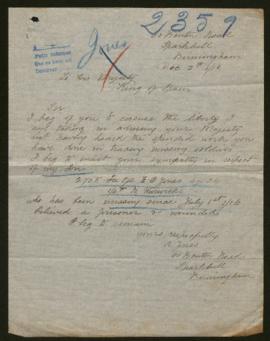 2359
Jones
Road
Sparkhill
Birmingham
Dec 2nd/16
To His Majesty
King of Spain
Sir
I beg of you to excuse the liberty I
am taking in asking your Majesty
but having heard of the kind work you
have done in tracing missing soldiers
I beg to your sympathy in respect
of my Son
R. Warwicks
has been missing since July 1st/16
believed a prisoner & wounded
I beg to remain
yours respectfully
Jones
Road
Sparkhill
Birmingham